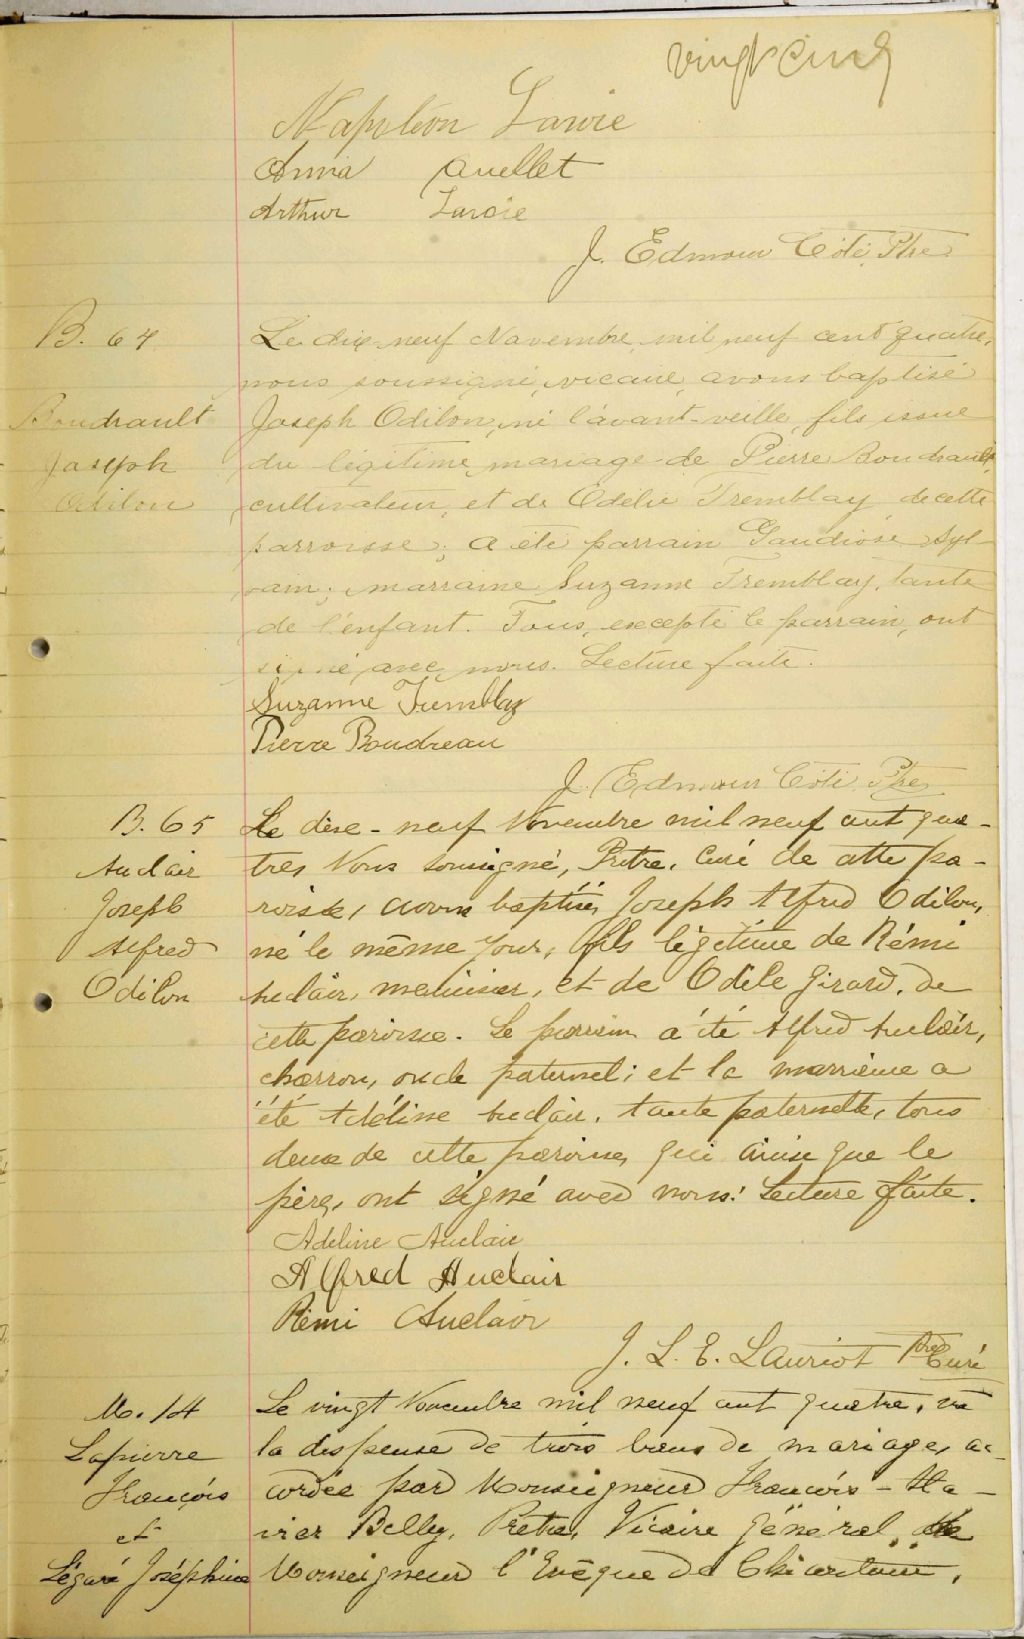 vingt cinq
Napoléon Lavoie
Anna Ouellet
Arthur Lavoie
J. Edmour Côté, Ptre
B. 64
Boudrault
Joseph
Odilon
Le dix-neuf Novembre mil neuf cent quatre,
nous soussigné, vicaire, avons baptisé
Joseph Odilon, né l'avant-veille, fils issue
du légitime mariage de Pierre Boudrault,
cultivateur, et de Odélie Tremblay de cette
parroisse; a été parrain Gaudiose Syl-
vain; marraine Suzanne Tremblay, tante
de l'enfant. Tous, excepté le parrain, ont
signé avec nous. Lecture faite.
Suzanne Tremblay
Pierre Boudreau
J. Edmour Côté, Ptre
B. 65
Auclair
Joseph
Alfred
Odilon
Le dixe-neuf Novembre mil neuf cent qua-
tre, Nous soussigné, Prêtre, Curé de cette pa-
roisse, avons baptisé, Joseph Alfred Odilon,
né le même jour, fils légitime de Rémi
Auclair, menuisier, et de Odile Girard, de
cette paroisse. Le parrain a été Alfred Auclair,
charron, oncle paternel; et la marraine a
été Adéline Auclair, tante paternelle, tous
deux de cette paroisse, qui ainsi que le
père, ont signé avec nous. Lecture faite.
Adeline Auclair
Alfred Auclair
Rémi Auclair
J. L. E. Lauriot Ptre Curé
M. 14
Lapierre
François
et
Légaré Joséphine
Le vingt Novembre mil neuf cent quatre, vu
la dispense de trois bans de mariage, ac-
cordée par Monseigneur François-Xa-
vier Belley, Prêtre, Vicaire Général de
Monseigneur l'Evêque de Chicoutimi,